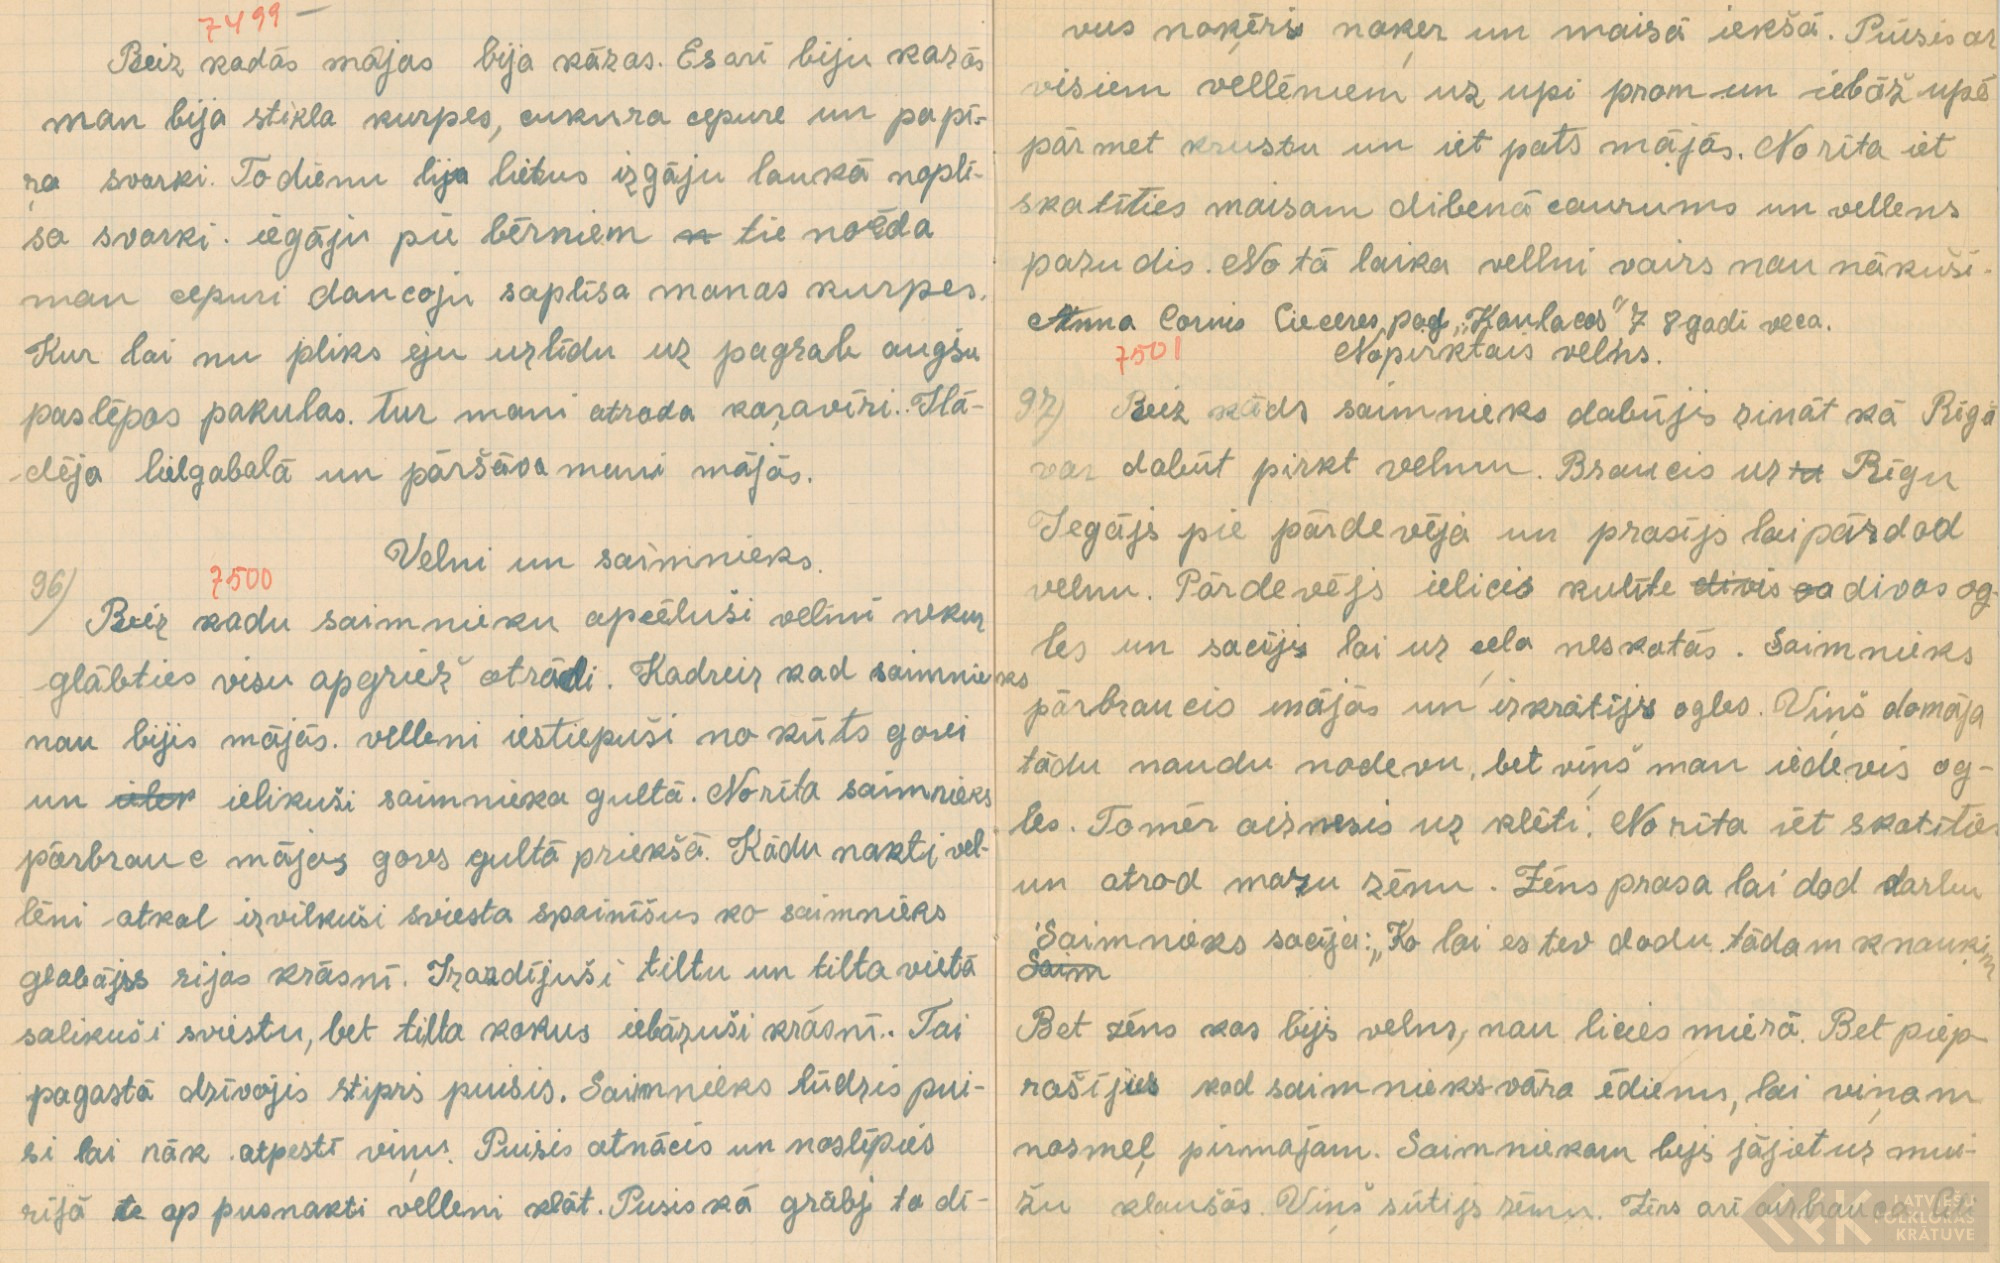 7499
Reiz kadās mājas bija kāzas. Es arī biju kazās
man bija stikla kurpes, cukura cepure un papī-
ŗa svarki. To dienu lija lietus izgāju laukā noplī-
sa svarki. iegāju pie bērniem n tie noēda
man cepuri dancoju saplīsa manas kurpes.
Kur lai nu pliks eju uzlīdu uz pagrab augšu
paslēpos pakulas. Tur mani atroda kaŗavīri. Ilā-
dēja lielgabalā un pāršāva mani mājās.
Velni un saimnieks.
96) 7500
Reiz kadu saimnieku apcēluši velini nekur
glābties visu apgriež otrādi. Kadreiz kad saimnieks
nau bijis mājās. velleni iestiepuši no kūts govi
un ieler ielikuši saimnieka gultā. No rīta saimnieks
pārbrauc mājas govs gultā priekšā. Kādu nakti vel-
lēni atkal izvilkuši sviesta spainīšus ko saimnieks
glabājss rijas krāsnī. Izardījuši tiltu un tilta vietā
salikuši sviestu, bet tilta kokus iebāzuši krāsnī. Tai
pagastā dzīvojis stiprs puisis. Saimnieks lūdzis pui-
si lai nāk atpestī viņu. Puisis atnācis un noslēpies
rijā te ap pusnakti velleni klāt. Pusis kā grābj ta di-
vus noķēris noķer un maisā iekšā. Puisis ar
visiem vellēniem uz upi prom un iebāž upē
pārmet krustu un iet pats mājās. No rīta iet
skatīties maisam dibenā caurums un vellens
pazudis. No tā laika vellni vairs nau nākuši.
Anna Cornis Cieceres pag „Kaulacos" 7 8 gadi veca.
7501 Nopirktais velns.
97) Reiz kāds saimnieks dabūjis zināt kā Rīgā
var dabūt pirkt velnu. Braucis uz tu Rīgu
Iegājs pie pārdevēja un prasījs lai pārdod
velnu. Pārdevējs ielicis kulīte divis oa divas og-
les un sacījis lai uz ceļa neskatās. Saimnieks
pārbraucis mājās un izkratījis ogles. Viņš domāja
tādu naudu nodevu, bet viņš man iedevis og-
les. Tomēr aiznesis uz klēti. No rīta iet skatītie
un atrod mazu zēnu. Zēns prasa lai dod darbu
Saimnieks sacīja: „Ko lai es tev dodu tādam knauķim
Saim
Bet zēns kas bijs velns, nau licies mierā. Bet piep-
rasījies kad saimnieks vāra ēdienu, lai viņam
nosmeļ pirmajam. Saimniekam bijs jājiet uz mui-
žu klaušās. Viņš sūtījs zēnu. Zēns arī aizbrauca
LATVIEŠU
FOLKLORAS
KRĀTUVE